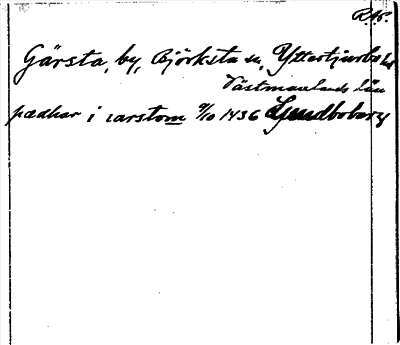 RAp.
Gärsta, by, Björksta sn, Yttertjurbo hd
Västmanlands län
pædhar i iarstom 9/10 1436 Ljundboberg